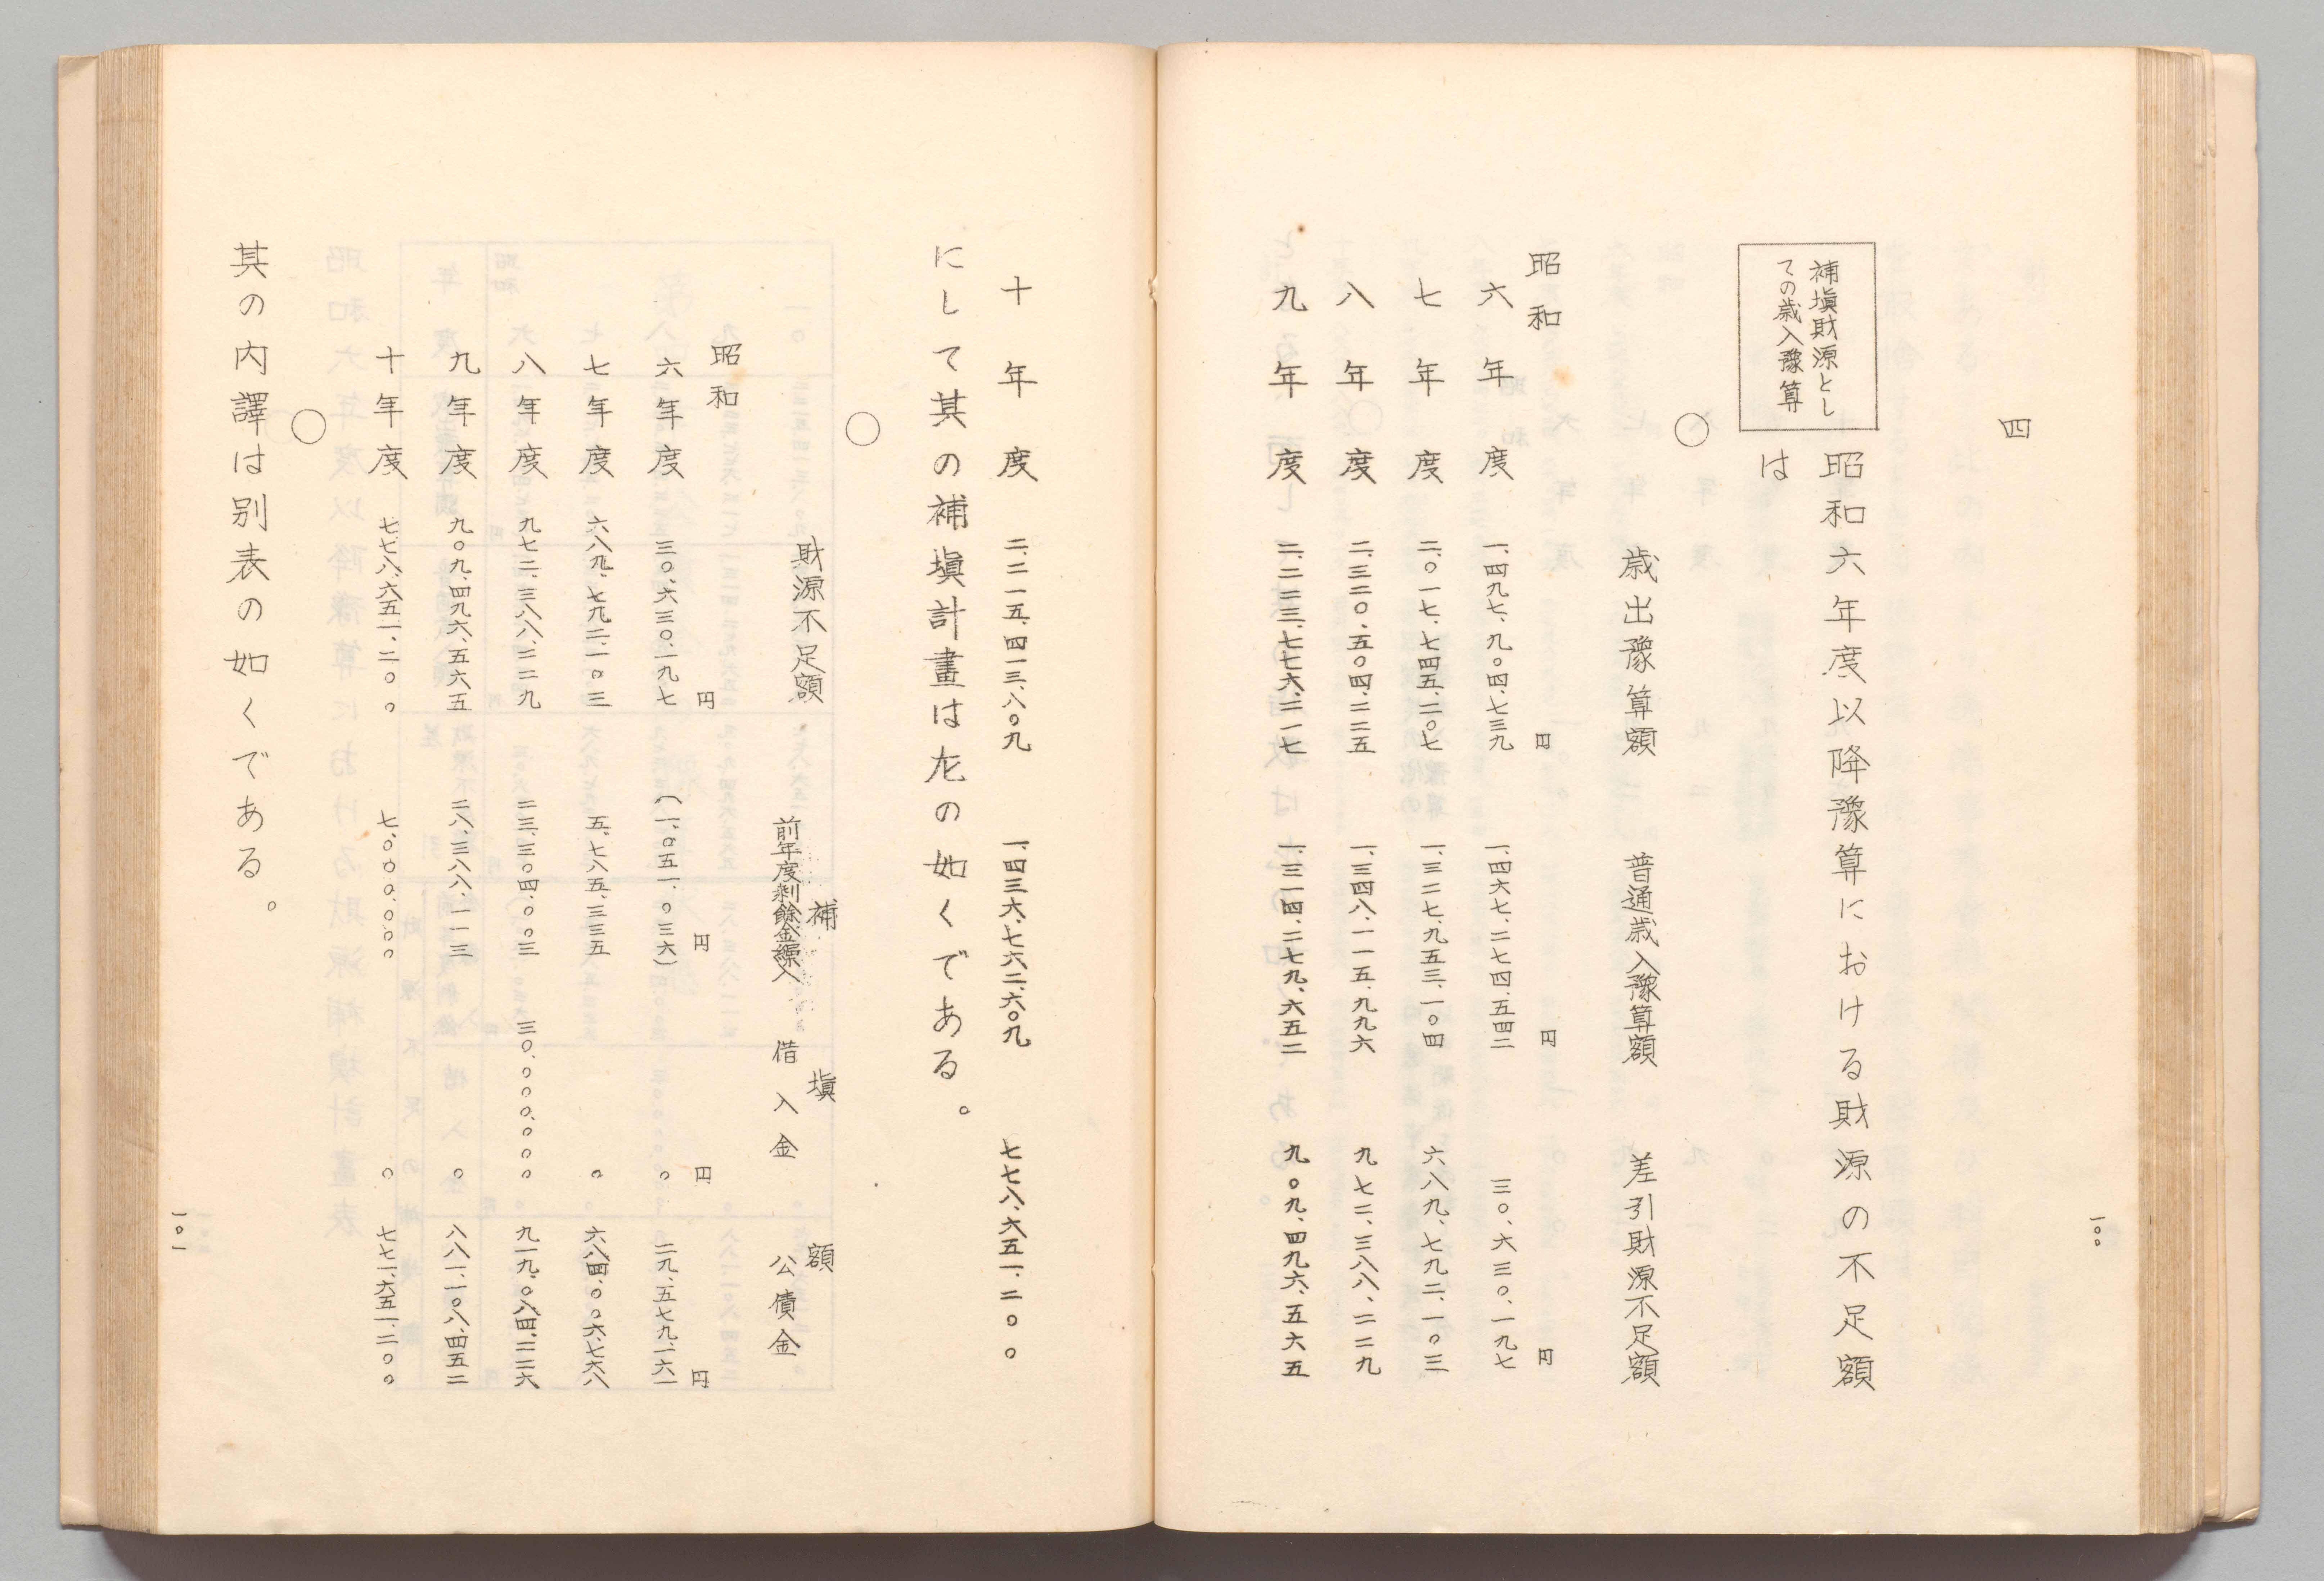 一〇〇
四
補塡財源とし
ての歳入豫算
昭和六年度以降豫算における財源の不足額
は
○
歳出豫算額 普通歳入豫算額 差引財源不足額
昭和 円 円 円
六年度 一、四九七、九〇四、七三九 一、四六七、二七四、五四二 三〇、六三〇、一九七
七年度 二、〇一七、七四五、二〇七 一、三二七、九五三、一〇四 六八九、七九二、一〇三
八年度 二、三二〇、五〇四、二二五 一、三四八、一一五、九九六 九七二、三八八、二二九
九年度 二、二二三、七七六、二一七 一、三一四、二七九、六五二 九〇九、四九六、五六五
十年度 二、二一五、四一三、八〇九 一、四三六、七六二、六〇九 七七八、六五一、二〇〇
にして其の補塡計畫は左の如くである。
○
財源不足額 補塡額
前年度剰餘金繰入 借入金 公債金
昭和 円 円 円 円
六年度 三〇、六三〇、一九七 (一、〇五一、〇三六) 〇 二九、五七九、一六一
七年度 六八九、七九二、一〇三 五、七八五、三三五 〇 六八四、〇〇六、七六八
八年度 九七二、三八八、二二九 二三、三〇四、〇〇三 三〇、〇〇〇、〇〇〇 九一九、〇八四、二二六
九年度 九〇九、四九六、五六五 二八、三八八、一一三 〇 八八一、一〇八、四五二
十年度 七七八、六五一、二〇〇 七、〇〇〇、〇〇〇 〇 七七一、六五一、二〇〇
○
其の内譯は別表の如くである。
一〇一